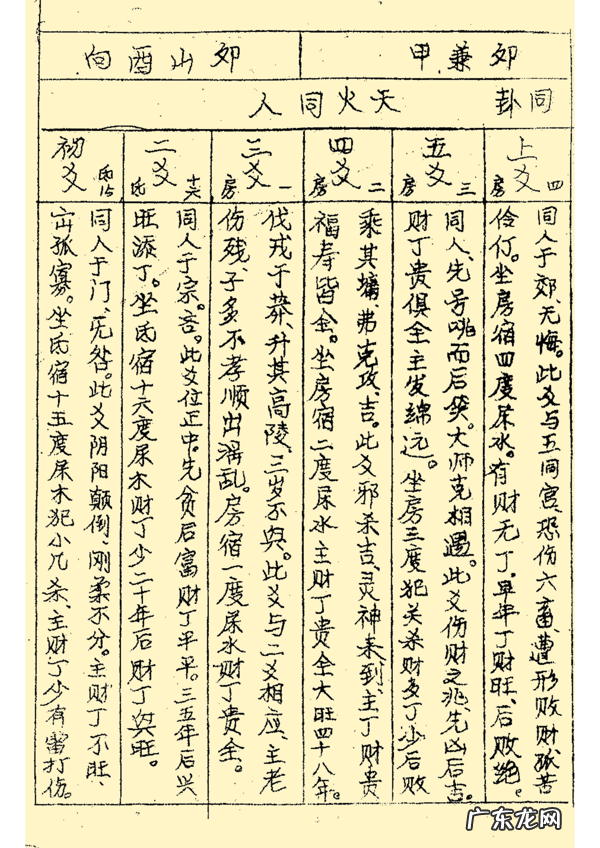 卯兼甲
卯山酉向
同卦
天火同人
上爻
房四
同人于郊、无悔。此爻与五同宫、恐伤六畜、遭形败财、孤苦
伶仃。坐房宿四度尿水。有财无丁、早年丁财旺、后败绝。
五爻
房三
同人、先号咷而后笑。大师克相遇。此爻伤财之兆、先凶后吉。
财丁贵俱全主发绵远。坐房三度犯关杀财多丁少后败
四爻
房二
乘其墉、弗克攻、吉。此爻邪杀吉、灵神来到、主丁财贵
福寿皆全。坐房宿二度尿水主财丁贵全大旺四十八年。
三爻
房一
伐戎于莽、升其高陵、三岁不兴。此爻与二爻相应、主老
伤残、子多不孝顺出淫乱。房宿一度尿水财丁贵全。
二爻
氐十六
同人于宗。吝。此爻位正中。先贫后富财丁平平。三五年后兴
旺添丁。坐氐宿十六度尿木财丁少二十年后财丁兴旺。
初爻
氐15
同人于门、无咎。此爻阴阳颠倒、刚柔不分。主财丁不旺、
出孤寡。坐氐宿十五度尿木犯小几杀、主财丁少有雷打伤。
广东龙网